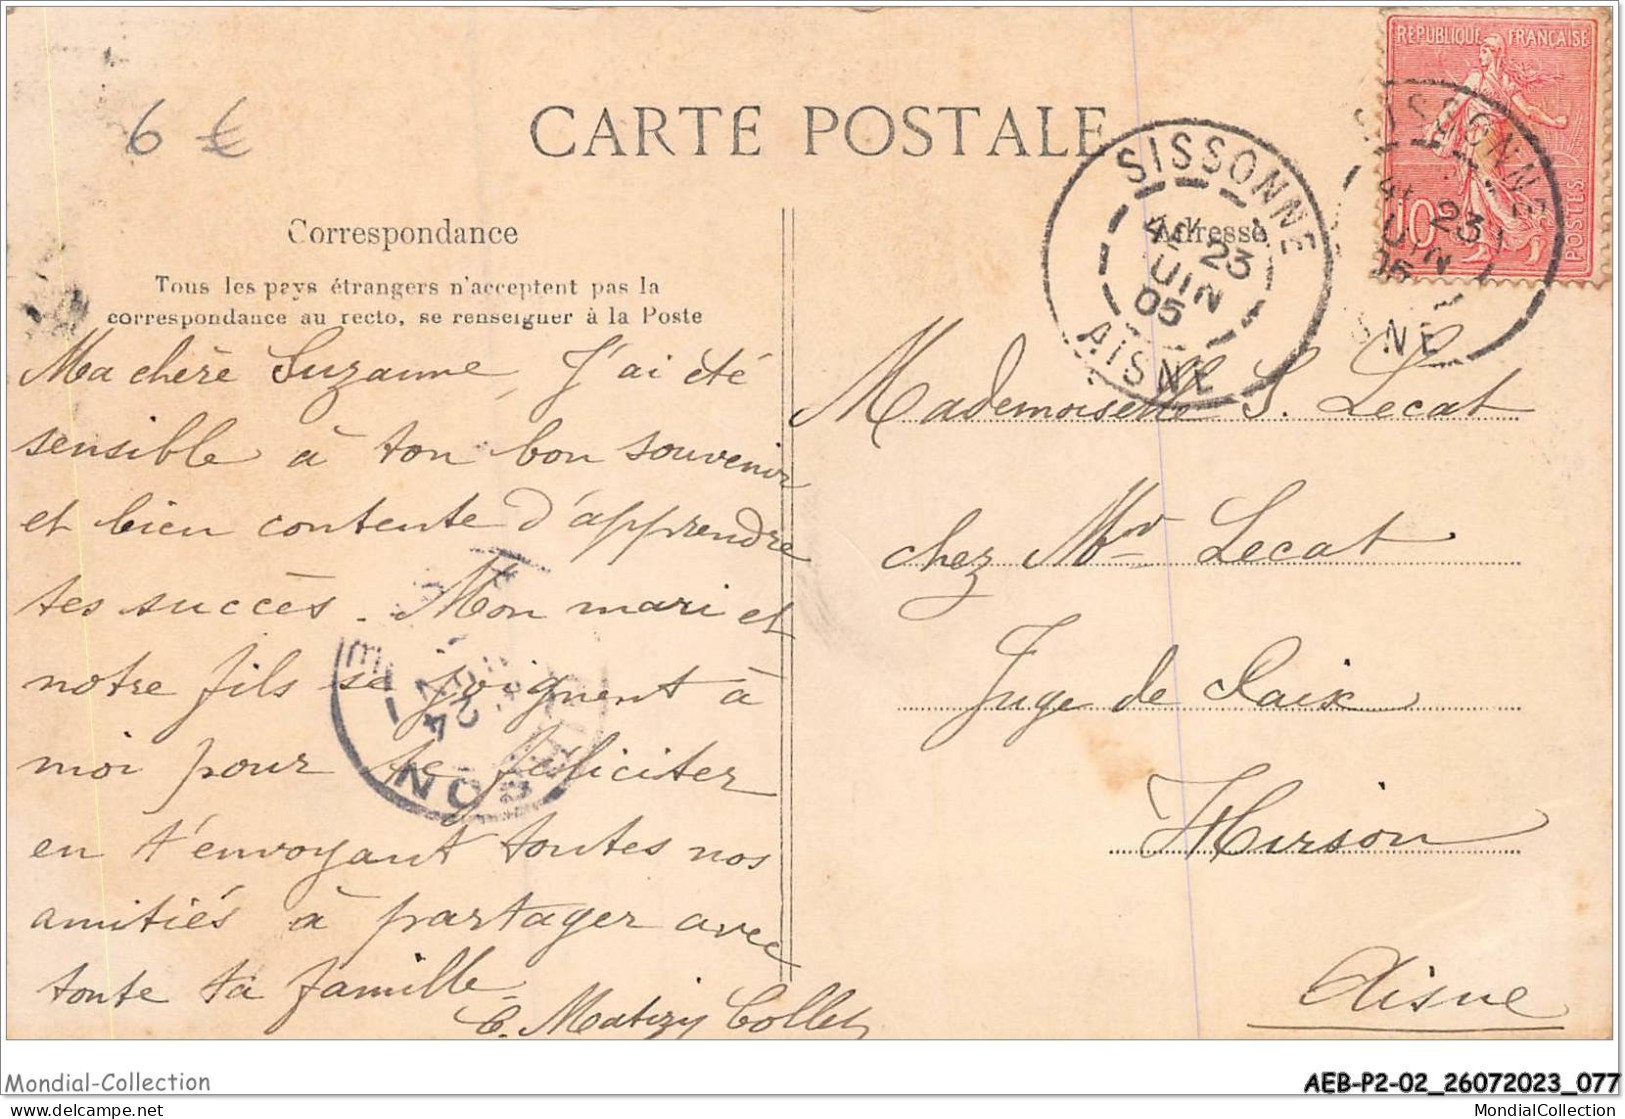 6 €
CARTE POSTALE
REPUBLIQUE FRANÇAISE
10
POSTES
SISSONNE
4E 23
JUIN
05
AISNE
SISSONNE
4E 23
JUIN
Correspondance
Adresse
Tous les pays étrangers n'acceptent pas la
correspondance au recto, se renseigner à la Poste
Ma chère Suzanne, J'ai été
sensible à ton bon souvenir
et bien contente d'apprendre
tes succès. Mon mari et
notre fils se joignent à
moi pour te féliciter
en t'envoyant toutes nos
amitiés à partager avec
toute ta famille.
C. Matizy Collet
HIRSON
24
Mademoiselle S. Lecat
chez Mr Lecat
Juge de Paix
Hirson
Aisne
Mondial-Collection
AEB-P2-02_26072023_077
www.delcampe.net
MondialCollection